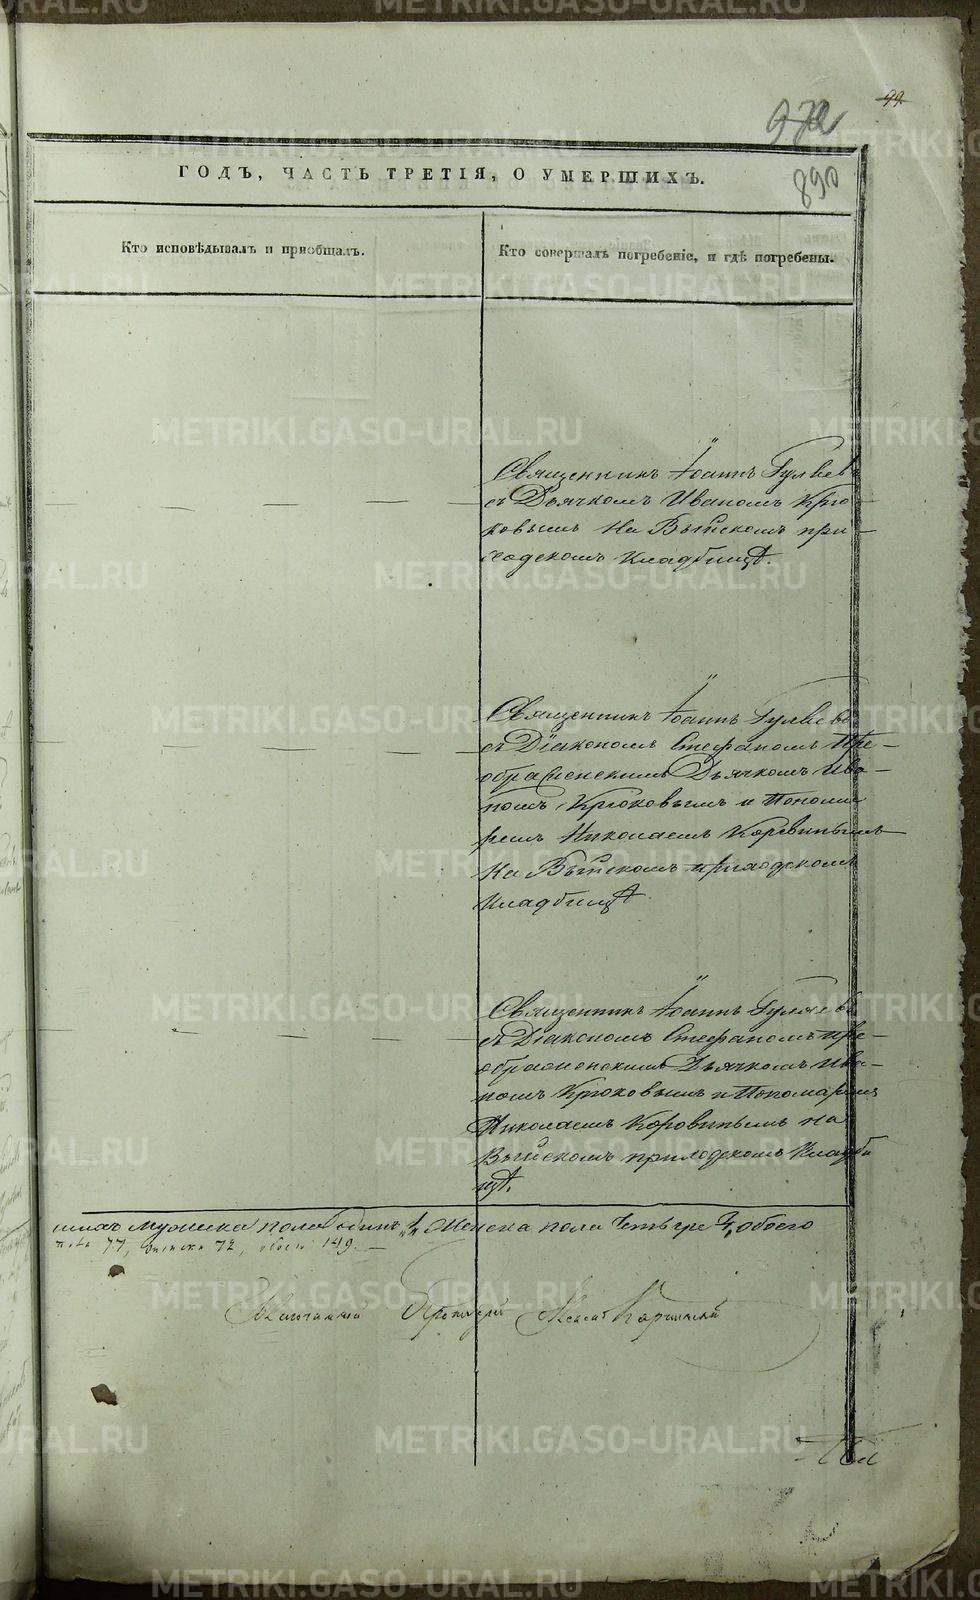 99
972
890
ГОДЪ, ЧАСТЬ ТРЕТІЯ, О УМЕРШИХЪ.
Кто исповѣдывалъ и пріобщалъ.
Кто совершалъ погребеніе, и гдѣ погребены.
Священникъ Іоаннъ Гуляевъ
съ Дьячкомъ Иваномъ Крю-
ковымъ На Выйскомъ при-
ходскомъ Кладбищѣ.
Священникъ Іоаннъ Гуляевъ
съ Діакономъ Стефаномъ Пре-
ображенскимъ Дьячкомъ Ива-
номъ Крюковымъ и Понома
ремъ Николаемъ Коровинымъ
На Выйскомъ приходскомъ
Кладбищѣ.
Священникъ Іоаннъ Гуляевъ
съ Діакономъ Стефаномъ Пре-
ображенскимъ Дьячкомъ Ива-
номъ Крюковымъ и Пономаремъ
Николаемъ Коровинымъ на
Выйскомъ приходскомъ Кладби
щѣ.
Мужска пола Женска пола Четыре обоего
77, женска 72, обоего 149.
Протоіерей
METRIKI.GASO-URAL.RU